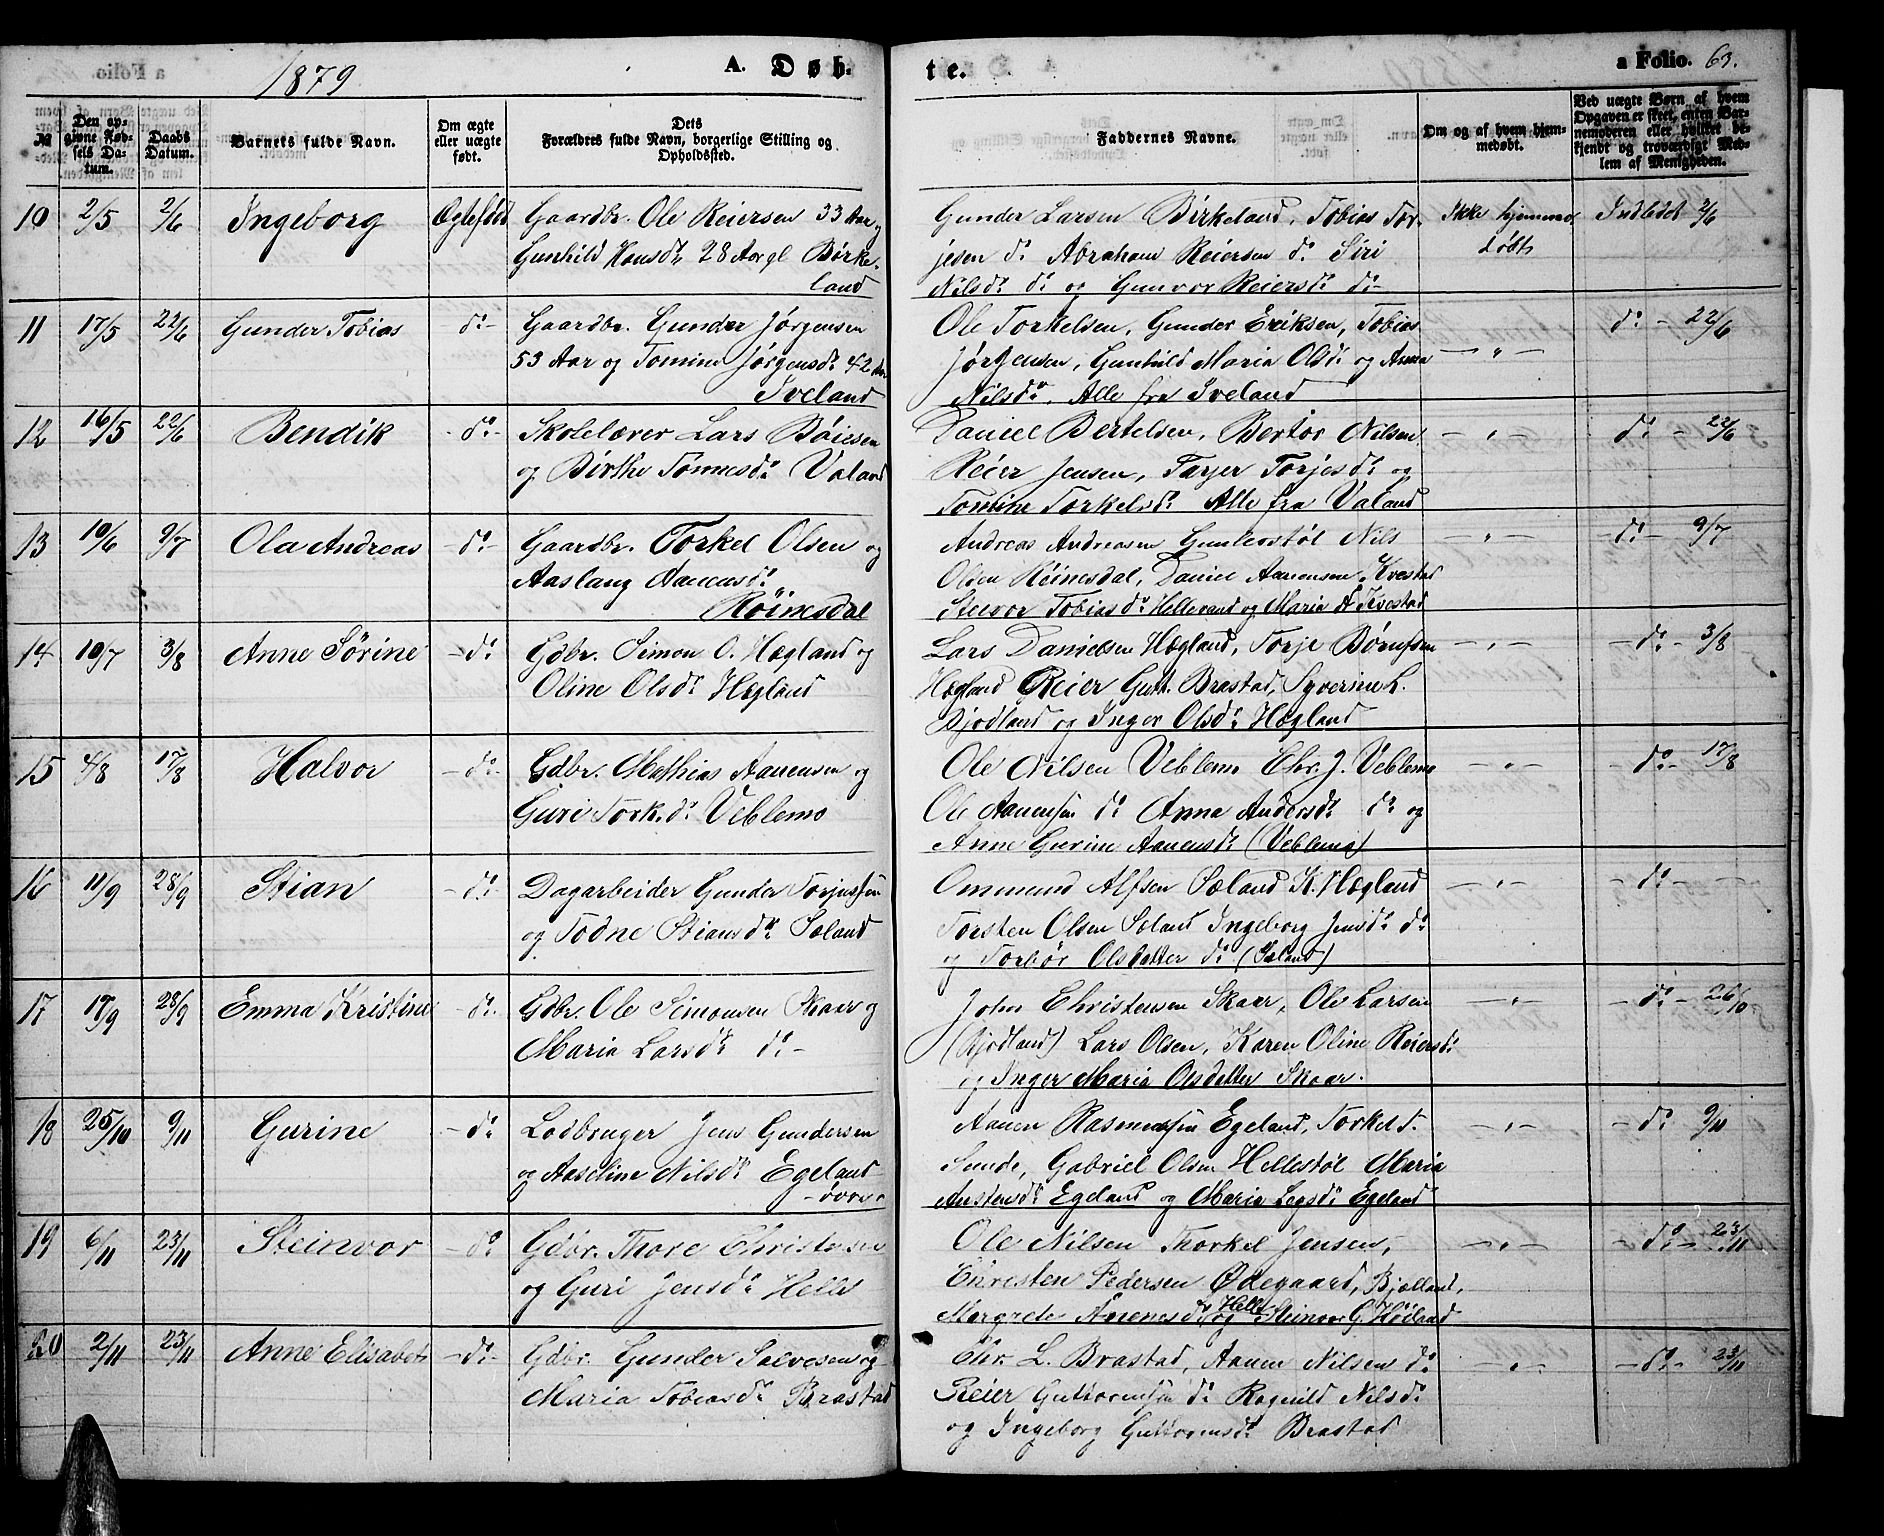 1879
A. Døb-
te.
a Folio. 63.
№
Den op-
givne Fød-
sels Da-
tum.
Daabs
Datum.
Barnets fulde Navn.
Om ægte
eller uægte
født.
Dets
Forældres fulde Navn, borgerlige Stilling og
Opholdssted.
Faddernes Navne.
Om og af hvem hjem-
medøbt.
Ved uægte Børn af hvem
Opgaven er skeet, enten Bar-
nemoderen eller hvilket be-
kjendt og troværdigt Med-
lem af Menigheden.
10 2/5 2/6 Ingeborg Ægtefødt Gaardbr. Ole Reiersen 33 Aar og
Gunhild Hansdr 28 Aar gl Birke-
land
Gunder Larsen Birkeland, Tobias Tor-
jesen do Abraham Reiersen do Siri
Nilsdr do og Gunvor Reiersdr do
Ikke hjemme-
døbt
Indledet 2/6
11 17/5 22/6 Gunder Tobias - do - Gaardbr. Gunder Jørgensen
53 Aar og Tomine Jørgensdr 42 Aar
Iveland
Ole Torkelsen, Gunder Eriksen, Tobias
Jørgensen, Gunhild Maria Olsdr og Anna
Nilsdr. Alle fra Iveland
- " - do - 22/6
12 16/5 22/6 Bendik - do - Skolelærer Lars Bøiesen
og Birthe Tomesdr Valand
Daniel Bertelsen, Bertor Nilsen
Reier Jensen, Tarjer Torjesdr og
Tomine Torkelsdr Alle fra Valand
- " - do - 22/6
13 10/6 9/7 Ola Andreas - do - Gaardbr. Torkel Olsen og
Aaslaug Aanensdr
Röinesdal
Andreas Andreasen Nils
Olsen Röinesdal, Daniel Aanensen Kvestad
Steivor Tobiasdr Helleland og Maria A Kvestad
- " - do - 9/7
14 10/7 3/8 Anne Sørine - do Gdbr. Simon O. Hægland og
Oline Olsdr Hægland
Lars Danielsen Hægland, Torje Børnsen
Hægland Reier Gutt. Brastad, Syverine L.
Bjodland og Inger Olsdr Hægland
- " - do - 3/8
15 4/8 17/8 Halvor - do - Gdbr. Mathias Aanensen og
Guri Tork.dr Veblemo
Ole Nilsen Veblemo Chr. J. Veblemo
Ole Aanensen do Anna Andersdr do og
Anne Gurine Aanensdr (Veblemo)
- " - do - 17/8
16 11/9 28/9 Stian - do Dagarbeider Gunder Torjussen
og Todne Stiansdr Sæland
Ommund Alfsen Sæland K. Hægland
Torsten Olsen Sæland Ingeborg Jensdr do
og Torbør Olsdatter do (Sæland)
- " - do -
17 17/9 28/9 Emma Kristine - do - Gdbr. Ole Simonsen Skaar og
Maria Larsdr do -
John Christensen Skaar, Ole Larsen
(Bjodland) Lars Olsen, Karen Oline Reiersdr
og Inger Maria Olsdatter Skaar.
- " - do - 26/10
18 25/10 9/11 Gurine - do Lodbruger Jens Gundersen
og Aaseline Nilsdr Egeland
- övre
Aanen Rasmussen Egeland, Torkel T.
Sunde, Gabriel Olsen Hellestöl Maria
Austensdr Egeland og Maria Legsdr Egeland
- " - do 9/11
19 6/11 23/11 Steinvor - do Gdbr. Thore Christensen
og Guri Jensdr Helle
Ole Nilsen Thorkel Jensen,
Christen Pedersen Ødegaard, Bjelland,
Margrete Aanensdr Helle og Steinvor G. Höiland
- " - do - 23/11
20 2/11 23/11 Anne Elisabet - do - Gdbr. Gunder Salvesen og
Maria Tobiasdr Brastad
Chr. L. Brastad, Aanen Nilsen do
Reier Guttormsen do Ragnild Nilsdr
og Ingeborg Guttormsdr Brastad
- " - do - 23/11